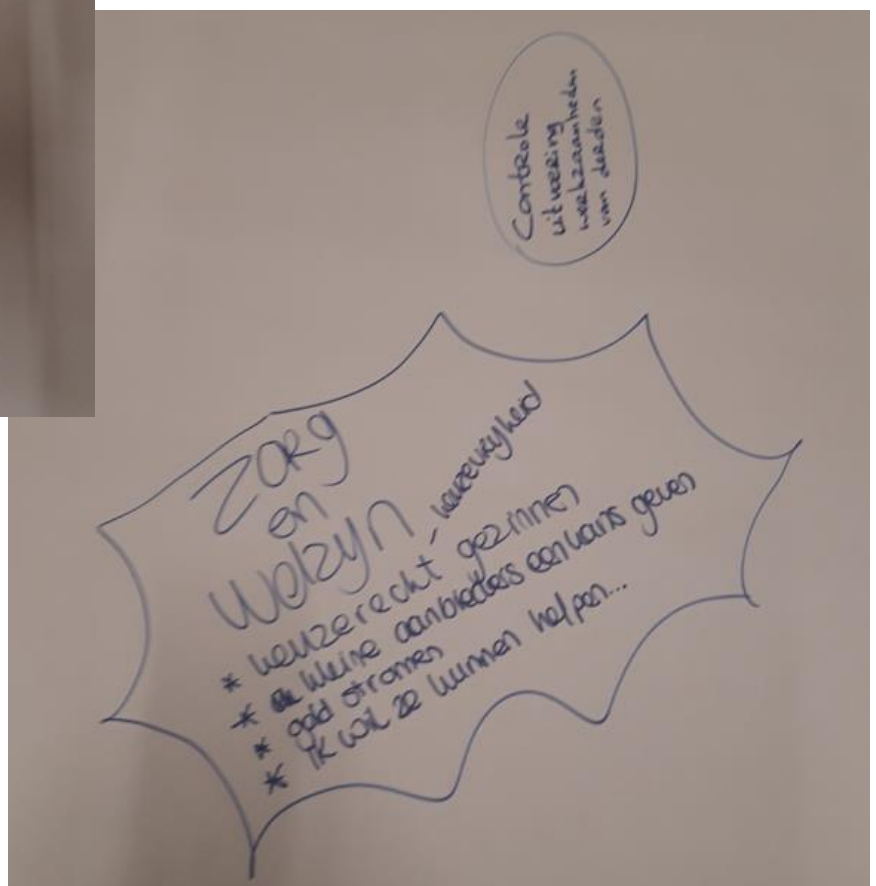 Controle
uitvoering
werkzaamheden
van derden
ZORg
en
Welzijn
- keuzevrijheid
* keuzerecht gezinnen
* kleine aanbieders een kans geven
* geld stromen
* IK wil ze kunnen helpen...